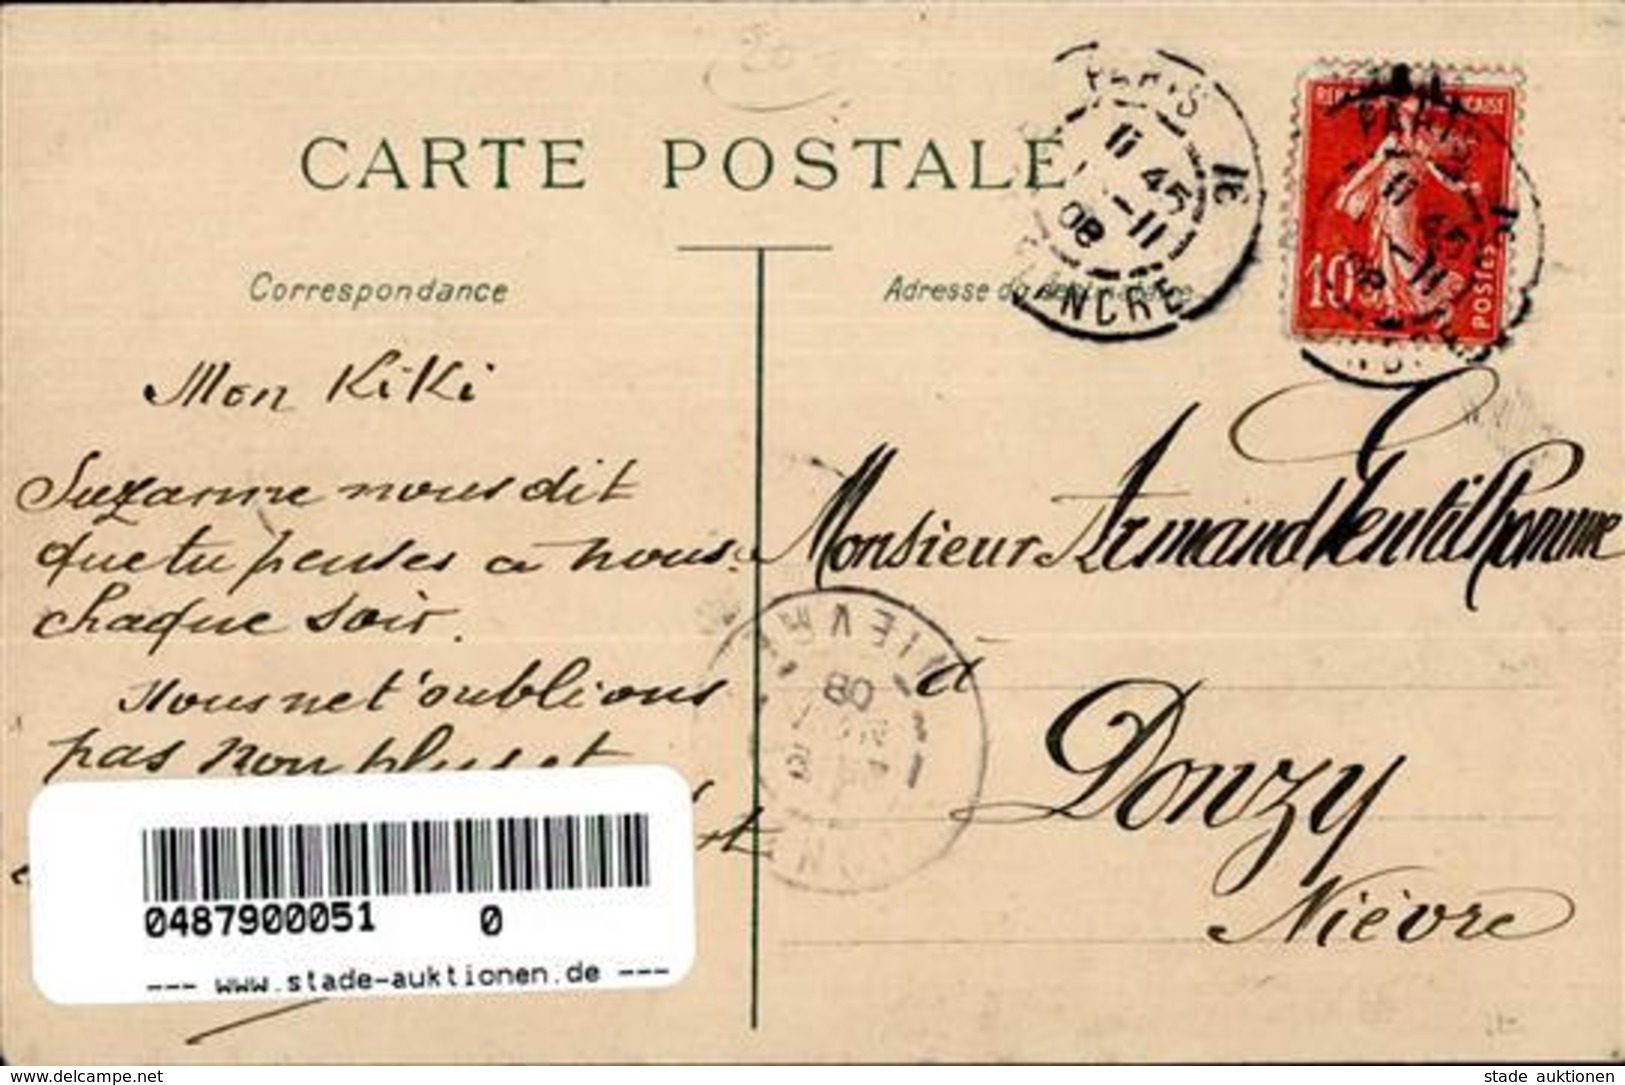 CARTE POSTALE
Correspondance
Adresse du destinataire
PARIS
11 45
1-11
08
REPUBLIQUE FRANCAISE
10c
POSTES
PARIS
11 45
1-11
08
Mon Kiki
Suzanne nous dit
que tu penses a nous
chaque soir.
Nous net'oublions
pas non plus et
Monsieur Armand Gentilhomme
à
Donzy
Nièvre
NIEVRE
08
0487900051 0
--- www.stade-auktionen.de ---
www.delcampe.net
stade auktionen